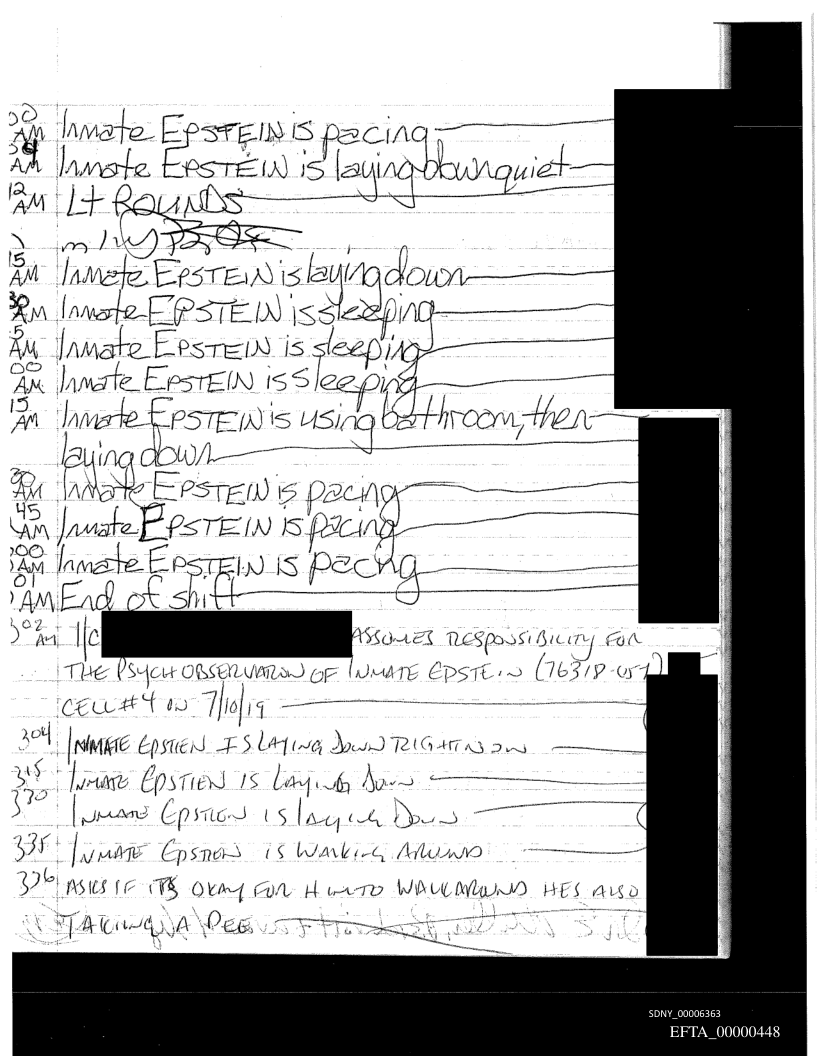 00 AM Inmate EPSTEIN is pacing
AM Inmate EPSTEIN is laying down quiet
12 AM Lt ROUNDS
15 AM Inmate EPSTEIN is laying down
30 AM Inmate EPSTEIN is sleeping
5 AM Inmate EPSTEIN is sleeping
00 AM Inmate EPSTEIN is sleeping
15 AM Inmate EPSTEIN is using bathroom, then
laying down
30 AM Inmate EPSTEIN is pacing
45 AM Inmate EPSTEIN is pacing
:00 AM Inmate EPSTEIN is pacng
01 AM End of shift
302 AM I/C ASSUMES RESPONSIBILITY FOR
THE PSYCH OBSERVATION OF INMATE EPSTEIN (76318-054)
CELL #4 ON 7/10/19
304 INMATE EPSTIEN IS LAYING DOWN RIGHT NOW
315 INMATE EPSTIEN IS LAYING DOWN
330 INMATE EPSTIEN IS LAYING DOWN
335 INMATE EPSTIEN IS WALKING AROUND
336 ASKS IF ITS OKAY FOR HIM TO WALK AROUND HES ALSO
TAKING A PEE
SDNY_00006363
EFTA_00000448